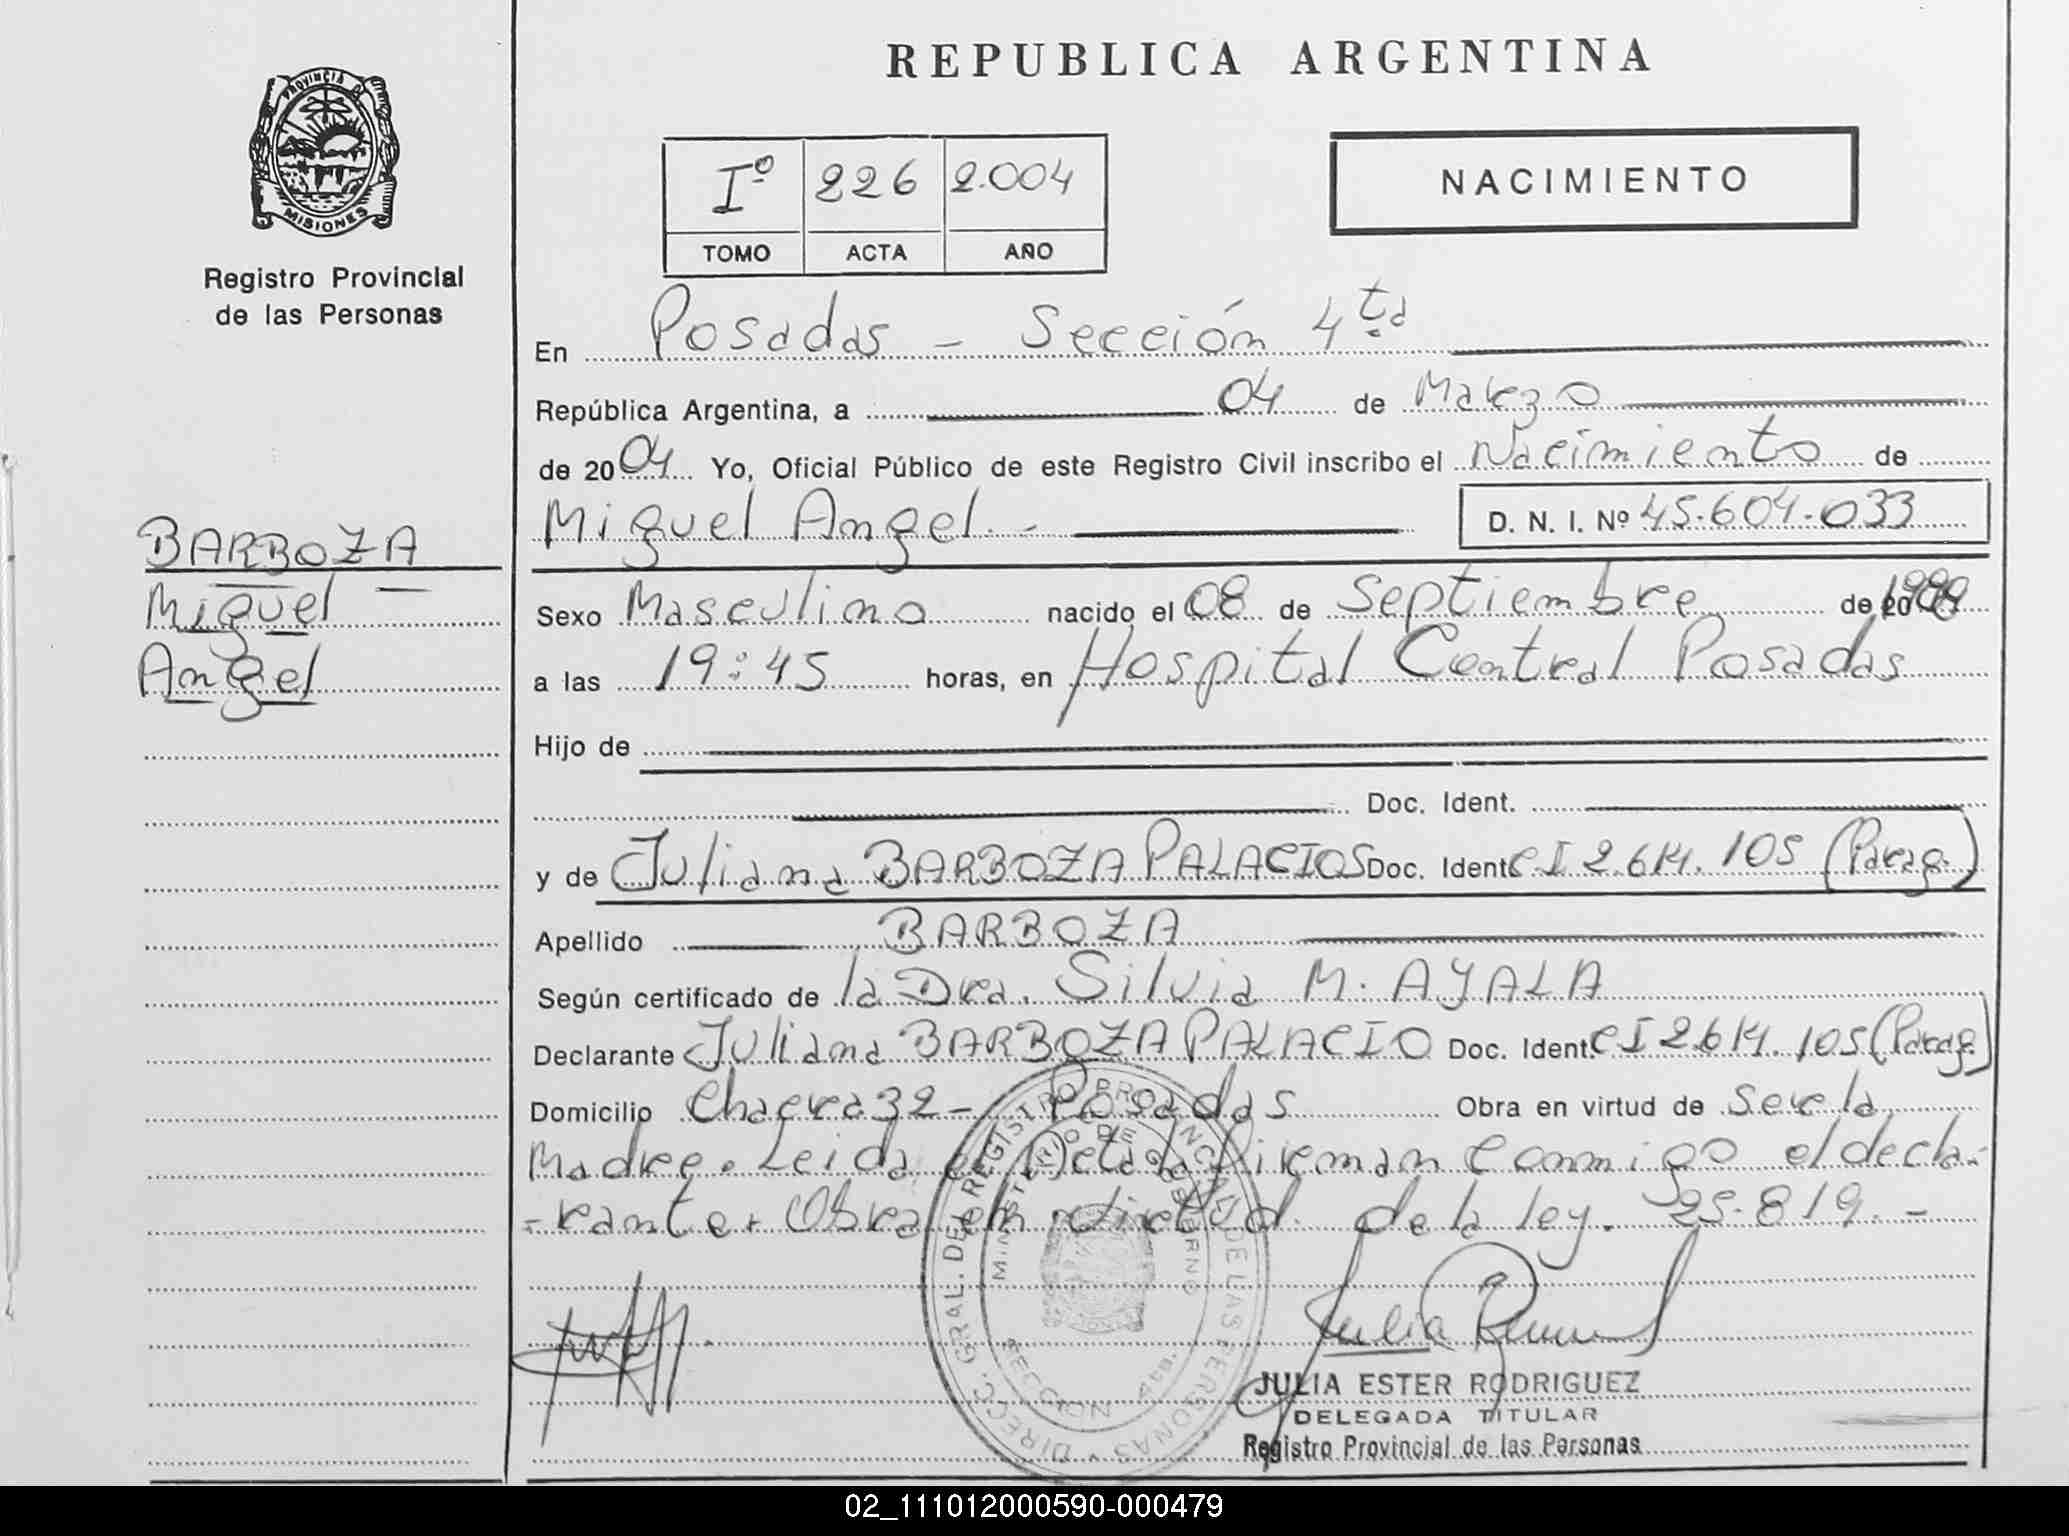 REPUBLICA ARGENTINA
PROVINCIA DE
MISIONES
Registro Provincial
de las Personas
Iº 226 2.004
TOMO ACTA AÑO
NACIMIENTO
En Posadas - Sección 4ta
República Argentina, a 04 de Marzo
de 2004 Yo, Oficial Público de este Registro Civil inscribo el Nacimiento de
Miguel Angel.- D. N. I. Nº 45.604.033
BARBOZA
Miguel
Angel
Sexo Masculino nacido el 08 de Septiembre de
a las 19:45 horas, en Hospital Central Posadas
Hijo de
Doc. Ident.
y de Juliana BARBOZA PALACIOS Doc. Ident. CI 2.614.105 (Parag.)
Apellido BARBOZA
Según certificado de la Dra. Silvia M. AYALA
Declarante Juliana BARBOZA PALACIO Doc. Ident. CI 2.614.105 (Parag.)
Domicilio Chacra 32 - Posadas Obra en virtud de Ser la
Madre. Leida el Acta la firman conmigo el decla-
-rante. Obra en virtud de la ley. 25.819.-
DIRECC. GRAL. DEL REGISTRO PROVINCIAL DE LAS PERSONAS
MINISTERIO DE GOBIERNO
SECCION 4ta.
JULIA ESTER RODRIGUEZ
DELEGADA TITULAR
Registro Provincial de las Personas
02_111012000590-000479